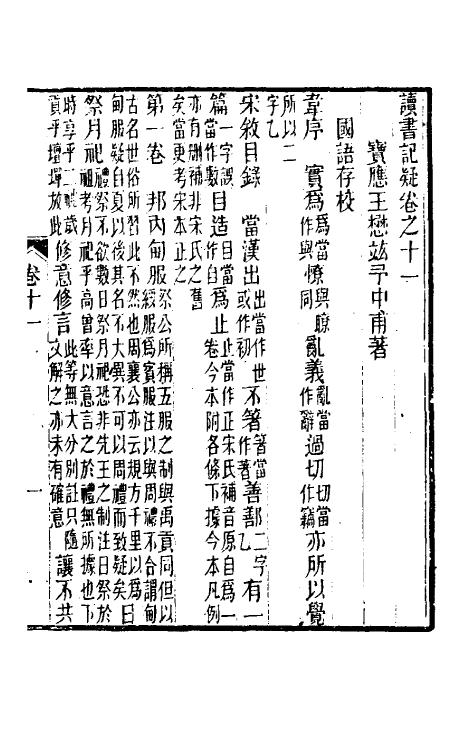 讀書記疑卷之十一
寶應王懋竑予中甫著
國語存校
韋序　實爲爲當作與憭與瞭同亂義亂當作辭過切切當作竊亦所以覺
所以二字乙
宋敘目錄　當漢出出當作世或作初不著著當作者善鄯二字乙有一
篇一字誤當作數目造目當作自爲止止當作正宋氏補音原自爲一卷今本附各條下據今本凡例
亦有刪補非宋氏之舊矣當更考宋本正之
第一卷　邦內甸服祭公所稱五服之制與禹貢同但以綏服爲賓服注以與周禮不合謂甸
古名世俗所習此不然也周襄公亦云規方千里以爲甸服疑自夏以後其名不大異不可以周禮而致疑矣日
祭月祀禮祭不欲數日祭月祀恐非先王之制注日祭於祖考月祀乎高曾率以意言之於禮無所據也下
時享乎二祧歲貢乎壇墠放此修意修言此等無大分別註只隨文解之亦未有確意讓不共
卷十一
一